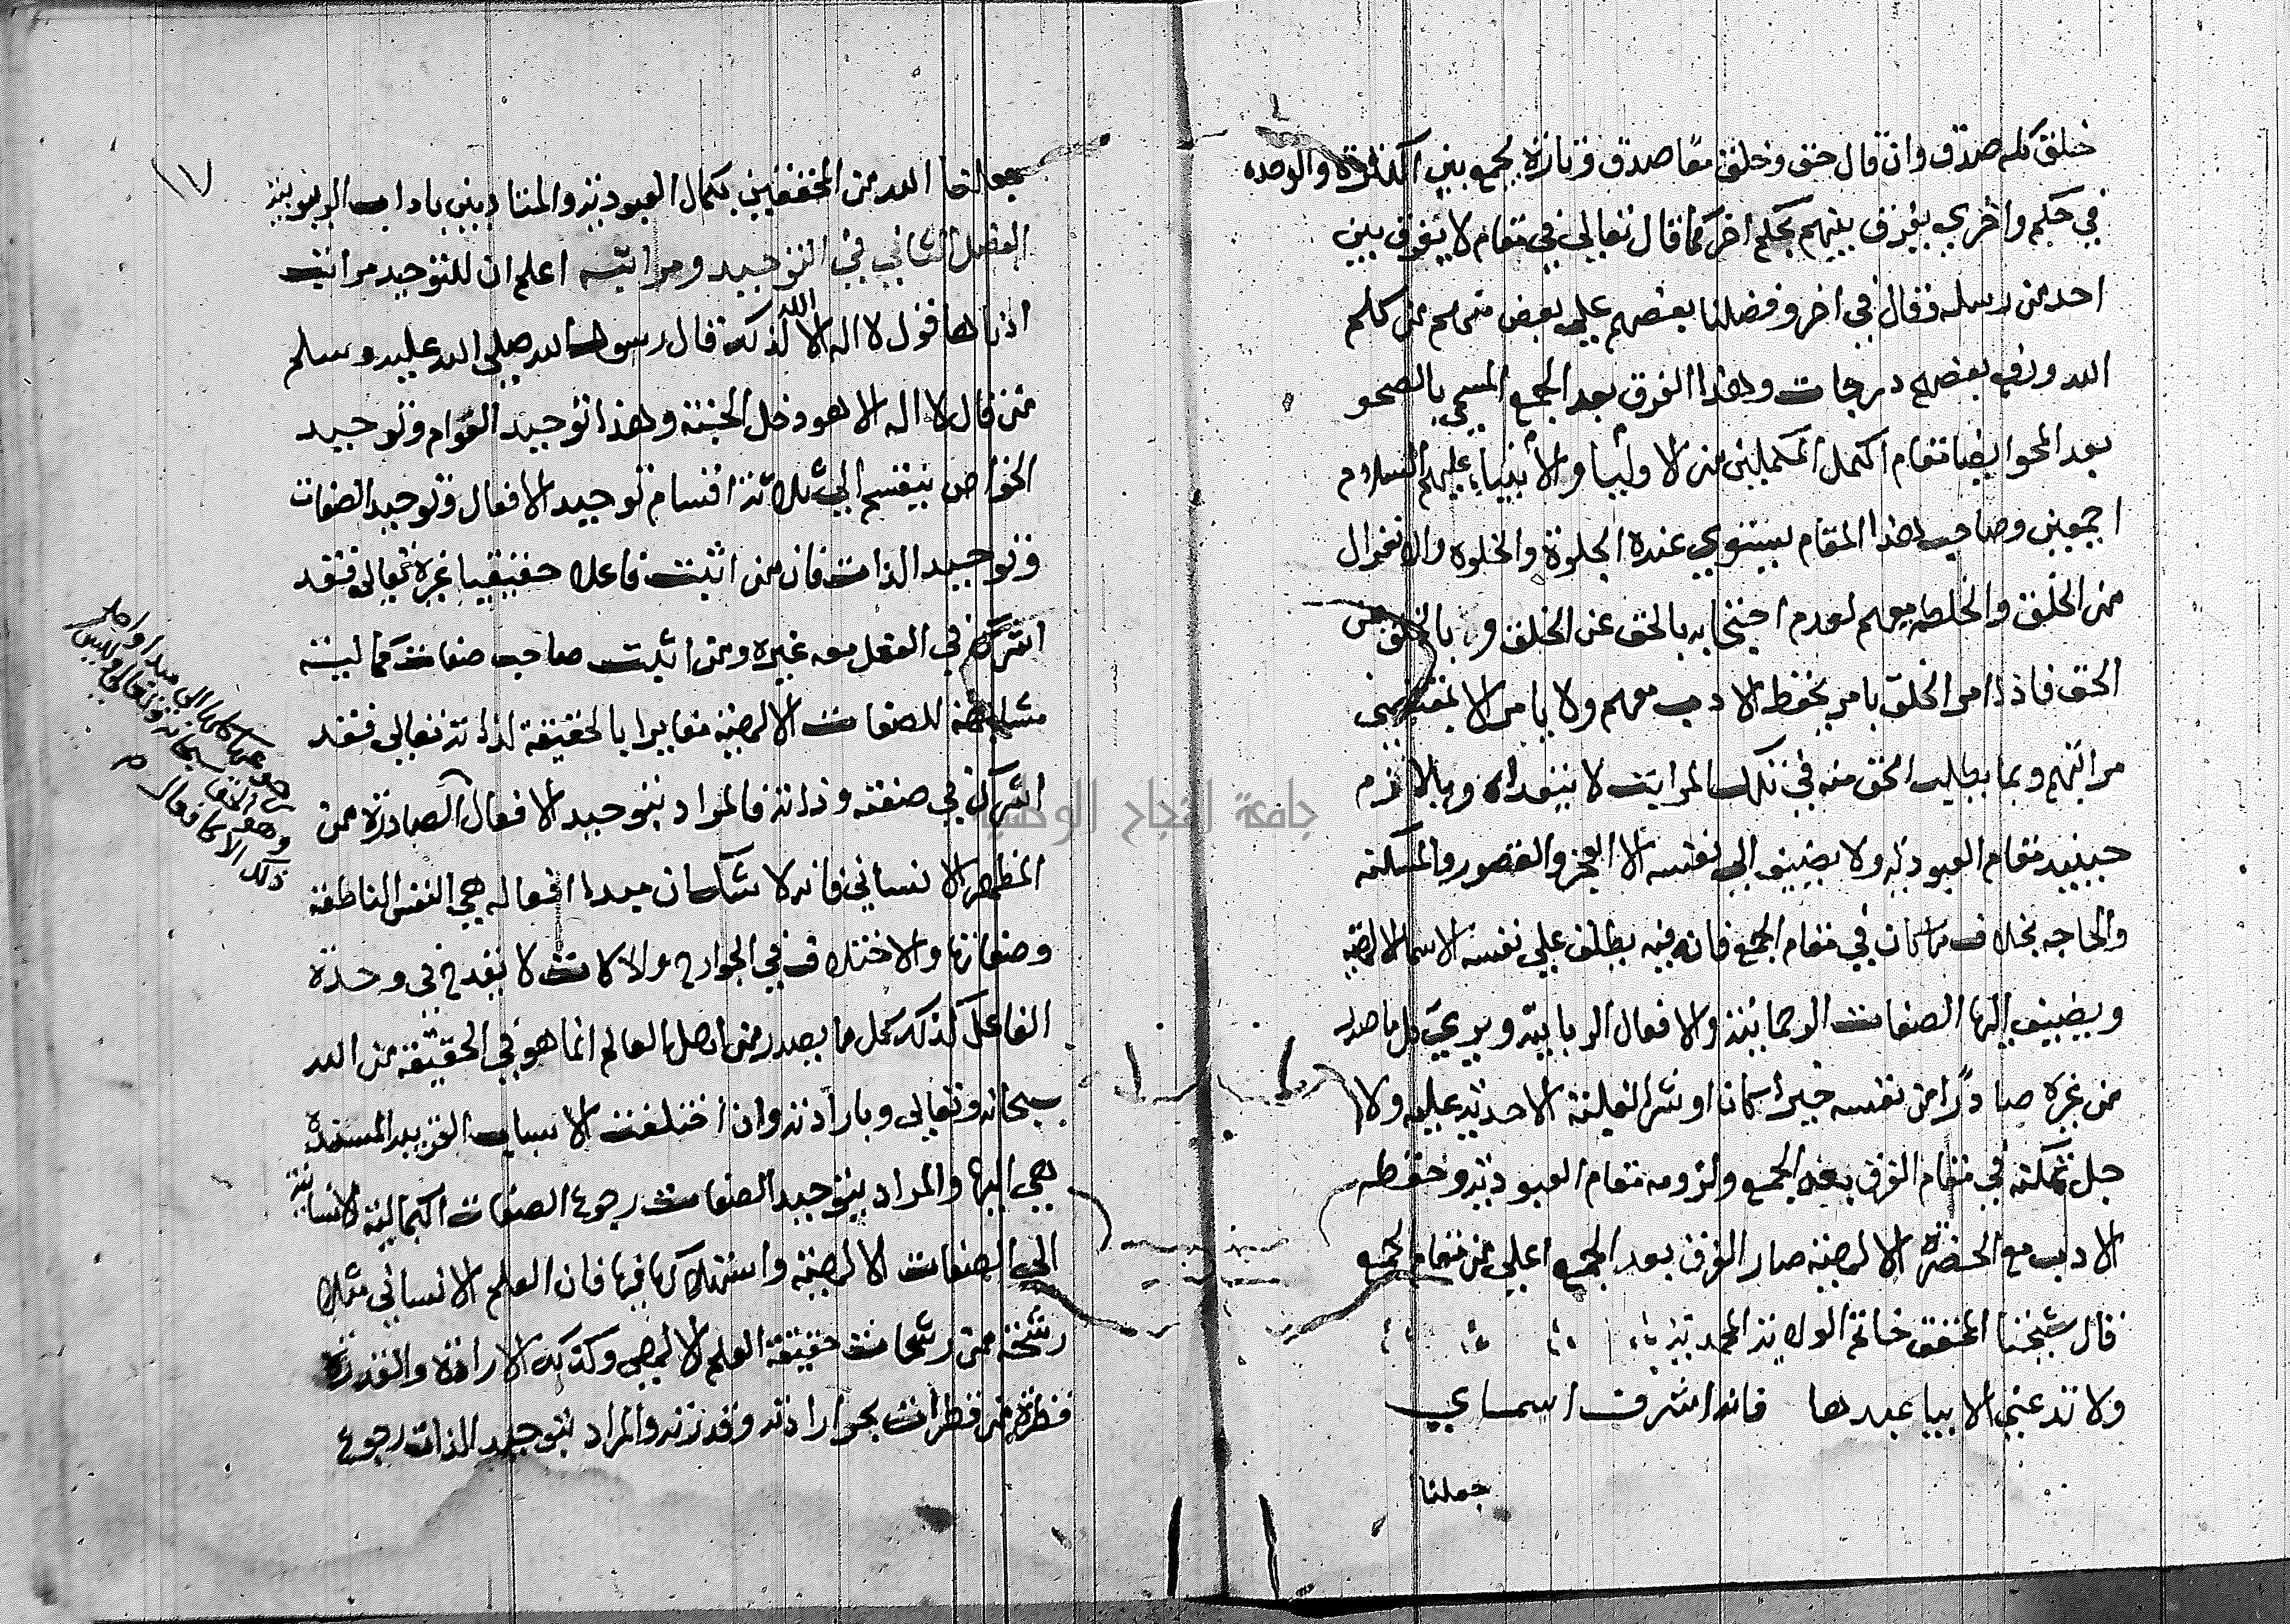 خلق كلهم صدق وان قال حق وخلق معا صدق وتارة يجمع بين الكثرة والوحده
في حكم واخرى يفرق بينهم بحكم اخر كما قال تعالى في مقام لا يفرق بين
احد من رسله وقال في اخر وفضلنا بعضهم على بعض منهم من كلم
الله ورفع بعضهم درجات وهذا الفرق بعد الجمع المسمى بالصحو
بعد المحو ايضا مقام الكمل المكملين من الاوليا والأنبياء عليهم السلام
اجمعين وصاحب هذا المقام يستوي عنده الجلوة والخلوه والانعزال
من الخلق والخلطه معهم لعدم احتجابه بالحق عن الخلق وبالخلق عن
الحق فاذا امر الخلق يامر بحفظ الادب معهم ولا يامر الا بمقتضى
مراتبهم وبما يطلب الحق منه في تلك المراتب لا يتعداه ويلازم
حينيذ مقام العبوديه ولا يضيف الى نفسه الا العجز والقصور والمسكنه
والحاجه بخلاف ما كان في مقام الجمع فانه فيه يطلق على نفسه الاسما الالهيه
ويضيف اليها الصفات الرحمانية والافعال الربابية ويرى كل ما صدر
من غيره صادرا من نفسه خيرا كانا او شرا لغلبة الاحدية عليه ولا
جل تمكنه في مقام الفرق بعد الجمع ولزومه مقام العبودية وحفظه
الادب مع الحضرة الالهية صار الفرق بعد الجمع اعلى من مقام الجمع
قال شيخنا المحقق خاتم الولاية المحمدية
ولا تدعني الا بيا عبدها فانه اشرف اسماي
جعلنا
١٧
جعلنا الله من المحققين بكمال العبودية والمتادبين باداب الربوبية
الفصل الثاني في التوحيد ومراتبه اعلم ان للتوحيد مراتب
ادناها قول لا اله الا الله لذلك قال رسول الله صلى الله عليه وسلم
من قال لا اله الا هو دخل الجنة وهذا توحيد العوام وتوحيد
الخواص ينقسم الى ثلاثة اقسام توحيد الافعال وتوحيد الصفات
وتوحيد الذات فان من اثبت فاعلا حقيقيا غيره تعالى فقد
اشرك في الفعل معه غيره ومن اثبت صاحب صفات كمالية
مشابهة للصفات الالهية مغايرا بالحقيقة لذاته تعالى فقد
اشرك في صفته وذاته فالمراد بتوحيد الافعال الصادرة من
المظهر الانساني فانه لا شك ان مبدا افعاله هي النفس الناطقة
وصفاتها والاختلاف في الجوارح والالات لا يقدح في وحدة
الفاعل كذلك كل ما يصدر من اهل العالم انما هو في الحقيقة من الله
سبحانه وتعالى وبارادته وان اختلفت الاسباب القريبه المستندة
هي اليها والمراد بتوحيد الصفات رجوع الصفات الكمالية الانسانية
الى الصفات الالهية واستهلاكها فيها فان العلم الانساني مثلا
رشحة من رشحات حقيقة العلم الالهي وكذلك الارادة والقدرة
قطرة من قطرات بحر ارادته وقدرته والمراد بتوحيد الذات رجوع
رجوعها كلها الى مبدا واحد
وهو الحق سبحانه وتعالى وليس
ذلك الا كافعال
جامعة النجاح الوطنية